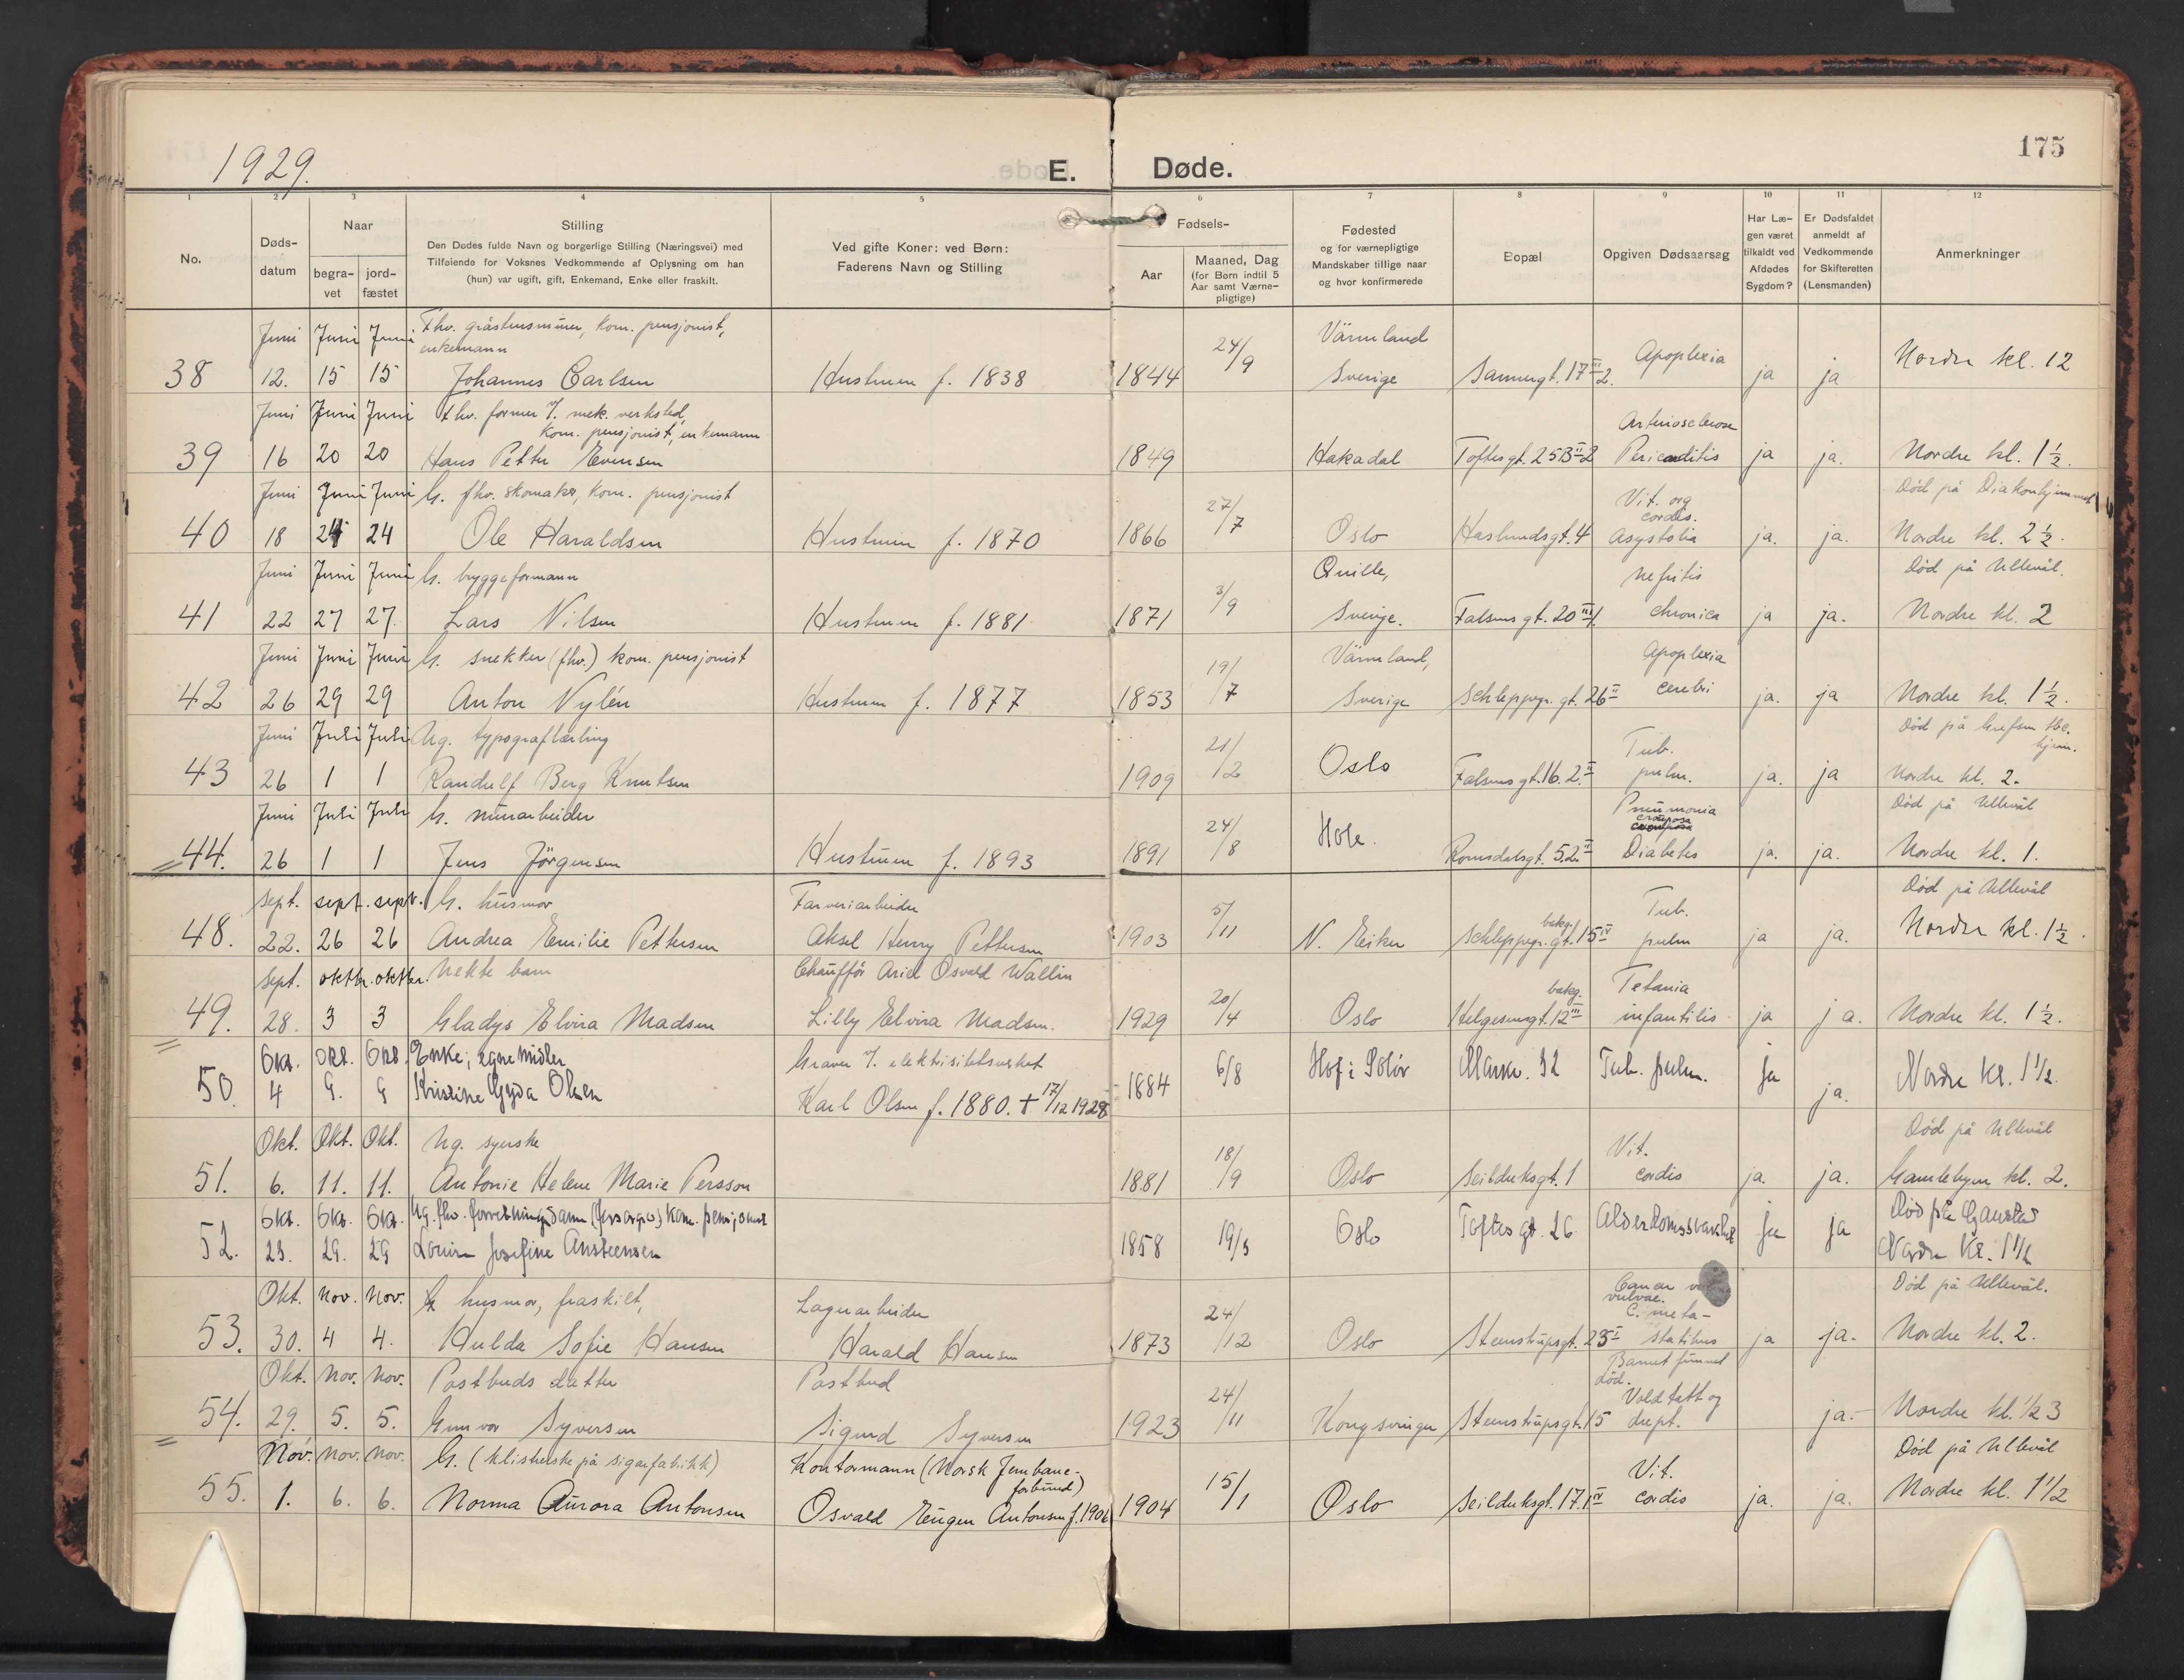 1929.
E.
Døde.
175
1 2 3 4 5 6 7 8 9 10 11 12
No.
Døds-
datum
Naar
begra-
vet
jord-
fæstet
Stilling
Den Dødes fulde Navn og borgerlige Stilling (Næringsvei) med
Tilføiende for Voksnes Vedkommende af Oplysning om han
(hun) var ugift, gift, Enkemand, Enke eller fraskilt.
Ved gifte Koner: ved Børn:
Faderens Navn og Stilling
Fødsels-
Aar
Maaned, Dag
(for Børn indtil 5
Aar samt Værne-
pligtige)
Fødested
og for værnepligtige
Mandskaber tillige naar
og hvor konfirmerede
Bopæl
Opgiven Dødsaarsag
Har Læ-
gen været
tilkaldt ved
Afdødes
Sygdom?
Er Dødsfaldet
anmeldt af
Vedkommende
for Skifteretten
(Lensmanden)
Anmerkninger
Juni Juni Juni Fhv. gråstensminer, kom. pensjonist, 24/9 Värmland
enkemann
38 12. 15 15 Johannes Carlsen Hustruen f. 1838 1844 Sverige Sannergt. 17 III 2. Apoplexia ja ja Nordre kl. 12
Juni Juni Juni fhv. former v. mek. verksted, Arteriosclerose
kom. pensjonist, enkemann
39 16 20 20 Hans Petter Evensen 1849 Hakadal Toftesgt. 25B II 2 Pericarditis ja ja. Nordre kl. 1 1/2.
Juni Juni Juni G. fhv. skomaker, kom. pensjonist 27/7 Vit. org. Død på Diakonhjemmet
cordis.
40 18 24 24 Ole Haraldsen Hustruen f. 1870 1866 Oslo Haslundsgt. 4 asystolia ja. ja. Nordre kl. 2 1/2.
Juni Juni Juni G. bryggeformann 3/9 Quille, Nefritis Død på Ullevål.
41 22 27 27. Lars Nilsen Hustruen f. 1881 1871 Sverige. Falsens gt. 20 III chronica ja ja. Nordre kl. 2
Juni Juni Juni G. snekker (fhv.) kom. pensjonist 19/7 Värmland, Apoplexia
42 26 29 29 Anton Nylén Hustruen f. 1877 1853 Sverige Schleppegr. gt. 26 II cerebri ja. ja Nordre kl. 1 1/2.
Juni Juli Juli Ug. typograflærling 21/2 Tub. Død på Grefsen tbc.
hjem.
43 26 1 1 Randulf Berg Knutsen 1909 Oslo Falsens gt. 16. 2 II pulm. ja. ja Nordre kl. 2.
Juni Juli Juli G. murarbeider 24/8 Pneumonia Død på Ullevål
crouposa
44. 26 1 1 Jens Jörgensen Hustruen f. 1893 1891 Hole. Romsdalsgt. 5. 2 II Diabetes ja. ja. Nordre kl. 1.
Sept. sept. sept. G. husmor Farveriarbeider 5/11 bakg. Tub. Død på Ullevål
48. 22. 26 26 Andrea Emilie Pettersen Aksel Henry Pettersen 1903 N. Eiker Schleppegr. gt. 15 IV pulm ja ja. Nordre kl. 1 1/2.
Sept. oktbr. oktbr. Uekte barn Chaufför Ariel Osvald Wallin 20/4 bakg. Tetania
49. 28. 3 3 Gladys Elvira Madsen Lilly Elvira Madsen. 1929 Oslo Helgesensgt. 12 III infantilis ja ja. Nordre kl. 1 1/2.
Okt. Okt. Okt. Enke; egne midler Graver v. elektrisitetsverket
50. 4 9. 9 Kristine Gyda Olsen Karl Olsen f. 1880. + 17/12 1928 1884 6/8 Hof i Solör Markv. 32 Tub. pulm. ja ja. Nordre kl. 1 1/2.
Okt. Okt. Okt. Ug. syerske 18/9 Vit. Død på Ullevål
51. 6. 11. 11. Antonie Helene Marie Persson 1881 Oslo Seilduksgt. 1 cordis ja. ja. Gamlebyen kl. 2.
Okt. Okt. Okt. Ug. fhv. forretningsdame (forsørges) kom. pensjonist Død på Gaustad
52. 23. 29. 29 Josefine Ansteensen 1858 19/3 Oslo Toftes gt. 26 Alderdomssvakhet ja ja Nordre kl. 1 1/2
Okt. Nov. Nov. G husmor, fraskilt, Lagerarbeider 24/12 Cancer Død på Ullevål.
vulvae.
C. meta-
53. 30. 4 4. Hulda Sofie Hansen Harald Hansen 1873 Oslo Steenstrupsgt. 23 I statibus ja ja. Nordre kl. 2.
Okt. Nov. Nov. Postbuds datter Postbud 24/11 Barnet funnet
død.
Voldtatt og
54. 29. 5. 5. Gunvor Syversen Sigurd Syversen 1923 Kongsvinger Steenstrupsgt. 15 drept. ja.- Nordre kl. 1/2 3
Nov. Nov. Nov. G. (klisterske på sigarfabikk) Kontormann (Norsk Jernbane- 15/1 Vit. Død på Ullevål
forbund)
55. 1. 6. 6. Norma Aurora Antonsen Osvald Eugen Antonsen f. 1906 1904 Oslo Seilduksgt. 17. 1 IV cordis ja. ja. Nordre kl. 1 1/2